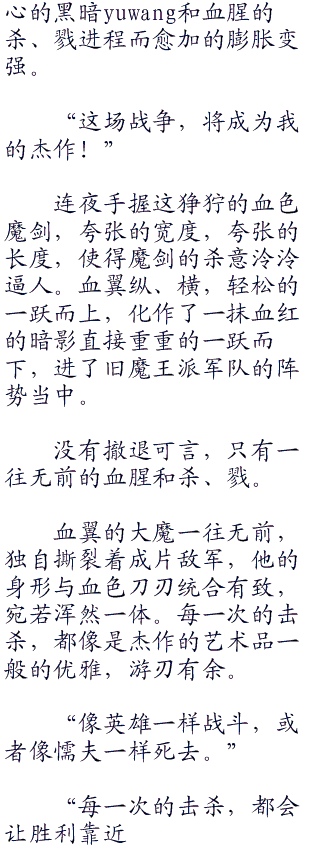 心的黑暗yuwang和血腥的
杀、戮进程而愈加的膨胀变
强。
“这场战争，将成为我
的杰作！”
连夜手握这狰狞的血色
魔剑，夸张的宽度，夸张的
长度，使得魔剑的杀意泠泠
逼人。血翼纵、横，轻松的
一跃而上，化作了一抹血红
的暗影直接重重的一跃而
下，进了旧魔王派军队的阵
势当中。
没有撤退可言，只有一
往无前的血腥和杀、戮。
血翼的大魔一往无前，
独自撕裂着成片敌军，他的
身形与血色刀刃统合有致，
宛若浑然一体。每一次的击
杀，都像是杰作的艺术品一
般的优雅，游刃有余。
“像英雄一样战斗，或
者像懦夫一样死去。”
“每一次的击杀，都会
让胜利靠近